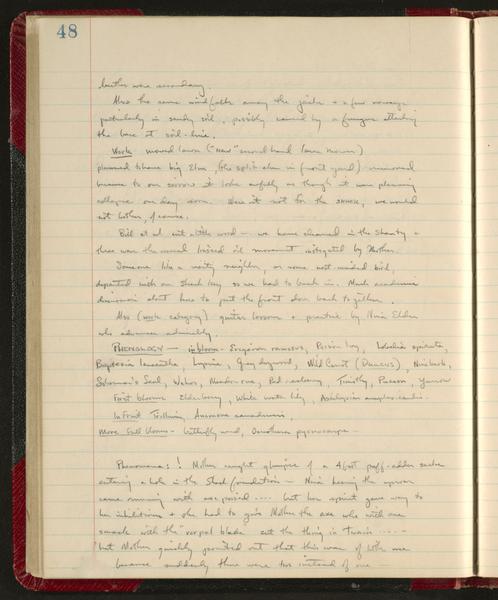 48
beetles were secondary.
Also the same wind falls among the jacks + a few
particularly in sandy soil, possibly caused by a fungus attacking
the base at soil-line.
Work: mowed lawn ("new" second hand lawn mower)
planned to have big Elm, (the split elm in front yard) removed
because to our sorrow it looks awfully as though it were planning
collapse one day soon. Were it not for the house, we would
not bother, of course.
Bill et al cut a little wood — we house cleaned in the Shanty +
there was the usual of movement instigated by Mother.
Someone like a neighbor, or some minded bird,
departed with our Shack key so we had to break in. Much academic
discussion about how to put the front door back together.
Also (work category) guitar lessons + practice by Nina Elder
who advances admirably.
PHENOLOGY — in bloom - Erigeron ramosus, Poison Ivy, Lobelia spicata,
Baptisia leucantha, Lupine, Gray dogwood, Wild Carrot (Daucus), Ninebark,
Solomon's Seal, Wahoo, Meadow rue, Red raspberry, Timothy, Puccoon, Yarrow
First bloom: Elderberry, White water lily, Asclepias amplexicaulis.
In Fruit Trillium, Anemone canadensis,
More Full bloom - butterfly weed, Oenothera
Phenomena: ! Mother caught glimpse of a 4 foot puff-adder snake
entering a hole in the Shack foundation — Nina hearing the uproar
came running with axe poised .... but her spirit gave way to
her inhibitions + she had to give Mother the axe who with one
smack with the blade cut the thing in twain .....
but Mother quickly pointed out that this was of little use
because suddenly there were two instead of one —